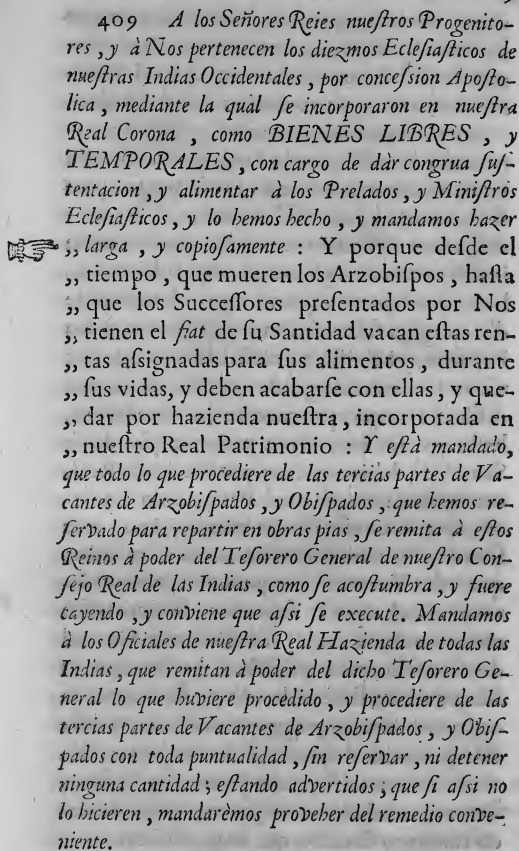 409 A los Señores Reies nuestros Progenito-
res, y à Nos pertenecen los diezmos Eclesiasticos de
nuestras Indias Occidentales, por concession Aposto-
lica, mediante la quàl se incorporaron en nuestra
Real Corona, como BIENES LIBRES, y
TEMPORALES, con cargo de dàr congrua sus-
tentacion, y alimentar à los Prelados, y Ministros
Eclesiasticos, y lo hemos hecho, y mandamos hazer
,, larga, y copiosamente : Y porque desde el
,, tiempo, que mueren los Arzobispos, hasta
,, que los Successores presentados por Nos
,, tienen el fiat de su Santidad vacan estas ren-
,, tas assignadas para sus alimentos, durante
,, sus vidas, y deben acabarse con ellas, y que-
,, dar por hazienda nuestra, incorporada en
,, nuestro Real Patrimonio : Y està mandado,
que todo lo que procediere de las tercias partes de Va-
cantes de Arzobispados, y Obispados, que hemos re-
servado para repartir en obras pias, se remita à estos
Reinos à poder del Tesorero General de nuestro Con-
sejo Real de las Indias, como se acostumbra, y fuere
cayendo, y conviene que assi se execute. Mandamos
à los Oficiales de nuestra Real Hazienda de todas las
Indias, que remitan à poder del dicho Tesorero Ge-
neral lo que huviere procedido, y procediere de las
tercias partes de Vacantes de Arzobispados, y Obis-
pados con toda puntualidad, sin reservar, ni detener
ninguna cantidad ; estando advertidos ; que si assi no
lo hicieren, mandarèmos proveher del remedio conve-
niente.